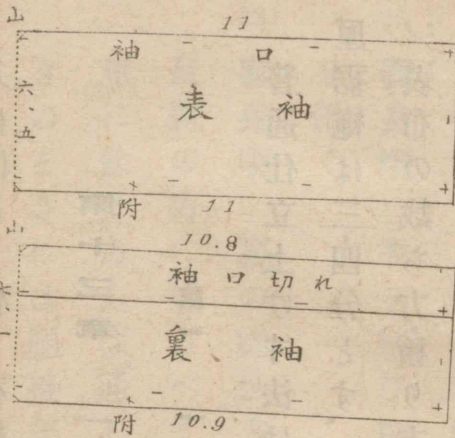 山
11
袖口
六、五
表袖
附 11
山
10.8
袖口切れ
裏袖
附 10.9